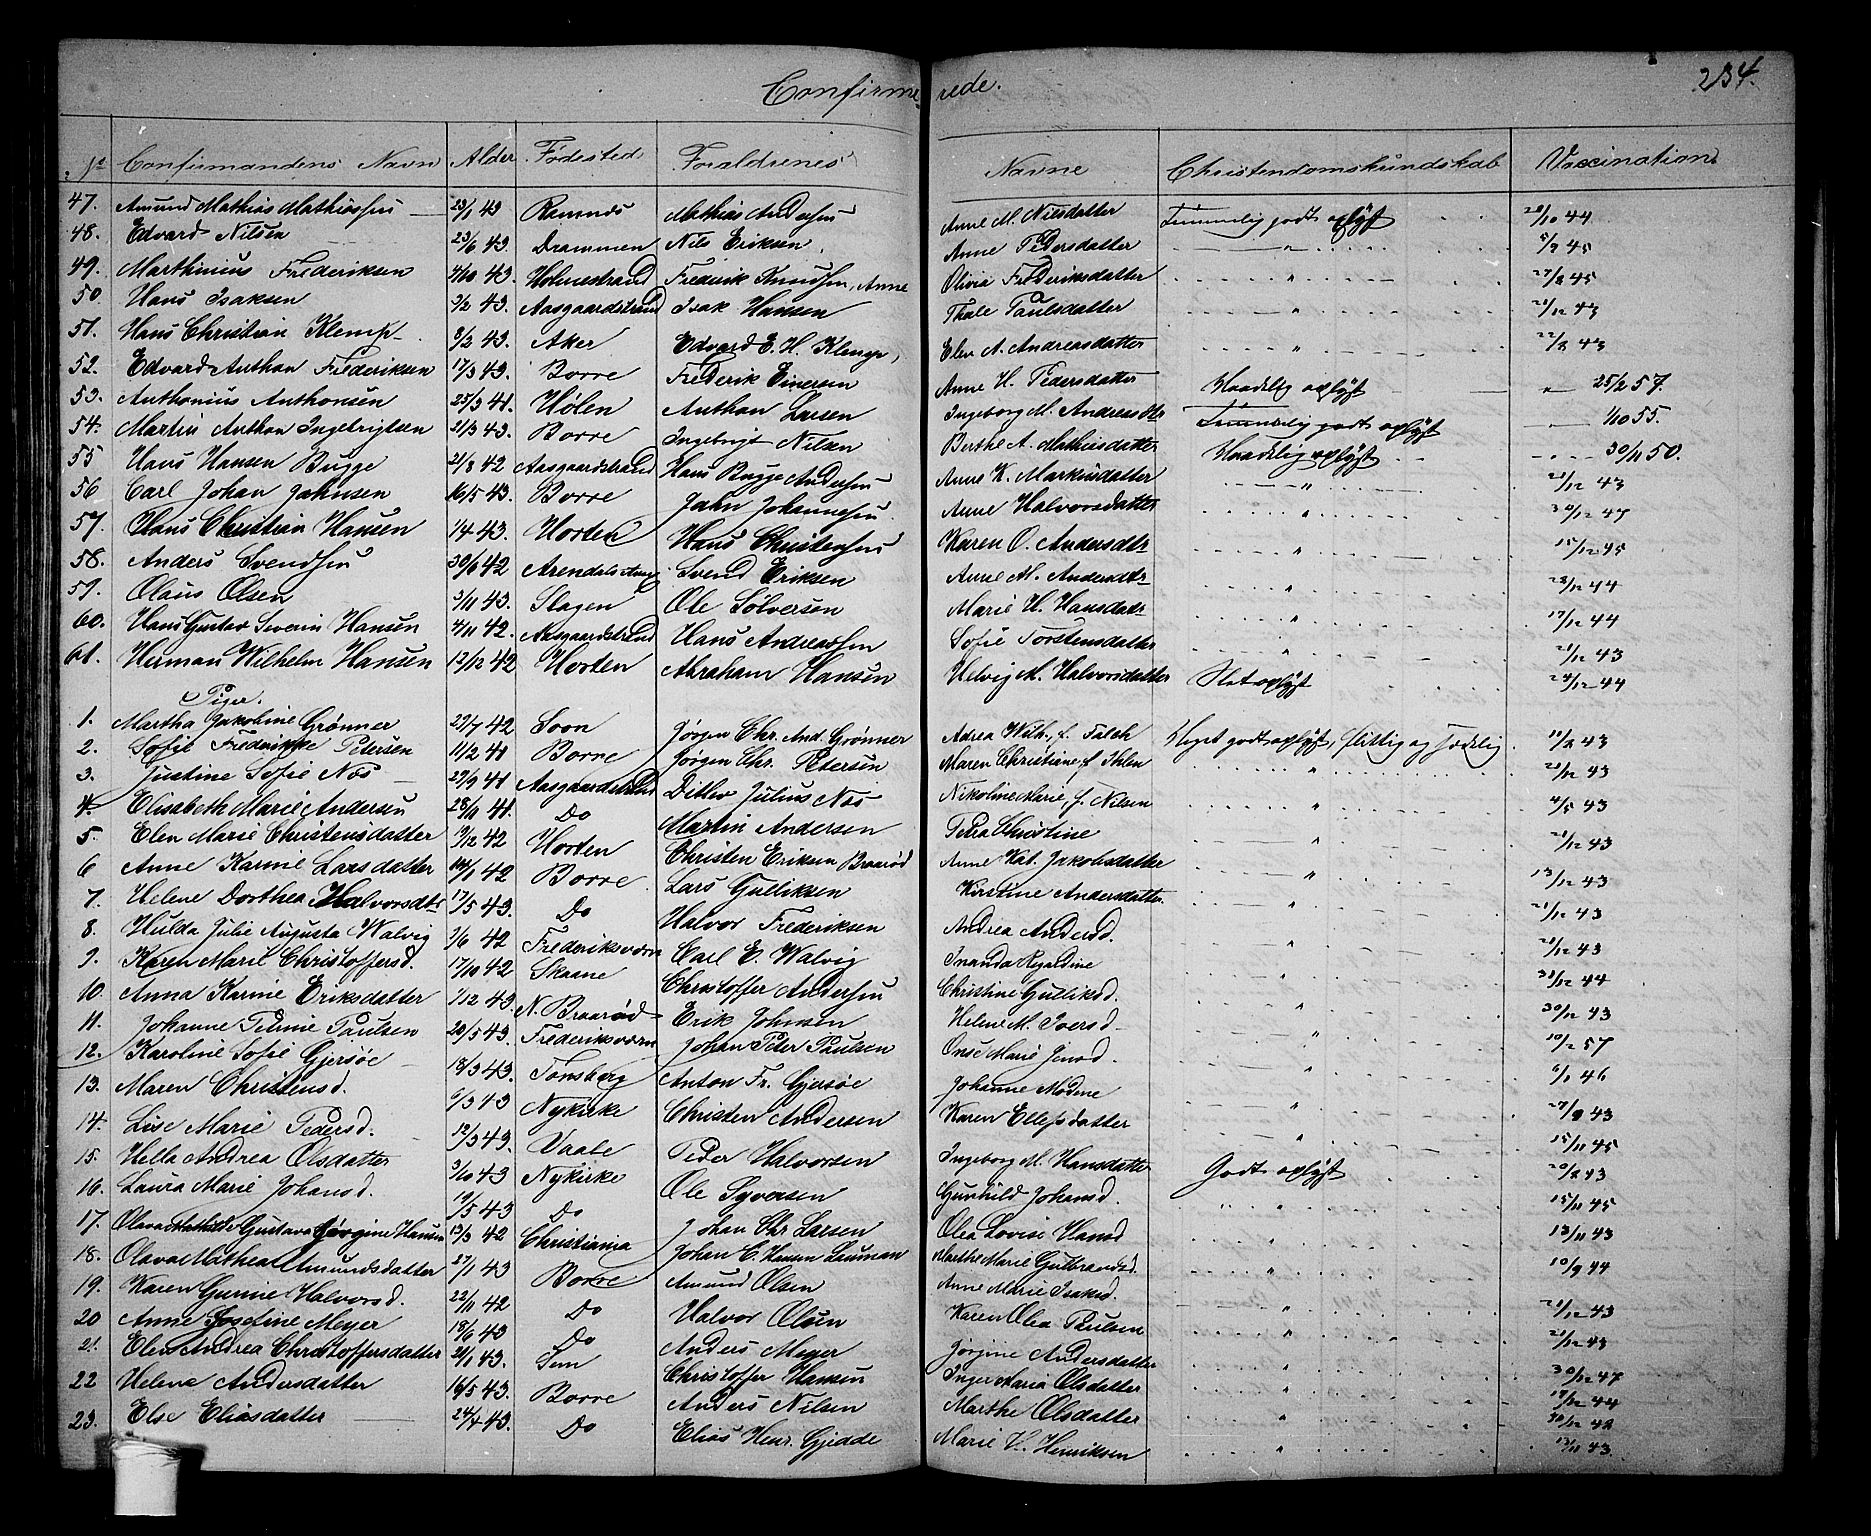 Confirmerede. 234.
No Confirmandens Navn Alder Fødested Forældrenes Navne Christendomskundskab Vaccination
47. Amund Mathias Mathiassen 23/1 43 Ramnæs Mathias Andersen Anne M. Nilsdatter Temmelig godt oplyst 20/10 44
48. Edvard Nilsen 23/6 43. Drammen Nils Eriksen, Anne Pedersdatter — " 5/7 45
49. Marthinius Frederiksen 4/10 43. Holmestrand Frederik Knudsen, Anne Olivia Frederiksdatter " 27/8 45
50. Hans Isaksen 3/2 43. Aasgaardstrand Isak Hansen Thale Paulsdatter " 21/12 43
51. Hans Christian Klemp 8/2 43. Aker Edvard E. H. Klempe, Elen A. Andreasdatter " 22/8 43
52. Edvard Anthon Frederiksen 17/3 43. Borre Frederik Einersen Anne H. Pedersdatter Maadelig oplyst " 25/2 57.
53. Anthonius Anthonsen 25/3 41. Hølen Anthon Larsen Ingeborg M. Andreasdtr Temmelig godt oplyst — 1/10 55.
54. Martin Anthon Ingebrigtsen 21/3 43. Borre Ingebrigt Nilsen Berthe A. Mathiasdatter Maadelig oplyst — 30/11 50.
55 Hans Hansen Bugge 21/8 42 Aasgaardstrand Hans Bugge Andersen Anne K. Markusdatter " 21/12 43
56 Carl Johan Jahnsen 16/5 43. Borre Jahn Johannesen Anne Halvorsdatter " 30/12 47
57. Olaus Christian Hansen 1/4 43. Horten Hans Christensen Karen O. Andersdtr " 15/12 45
58. Anders Svendsen 30/6 42 Arendals Svend Eriksen Anne M. Andersdtr " 28/12 44
59. Olaus Olsen 3/11 43. Slagen Ole Sølversen Marie H. Hansdatr " 17/12 44
60. Hans Gustav Severin Hansen 4/11 42. Aasgaardstrand Hans Andreassen Sofie Torstensdatter " 21/12 43
61. Herman Wilhelm Hansen 12/12 42 Horten Abraham Hansen Helvig M. Halvorsdatter Slet oplyst 24/12 44
Piger.
1. Martha Jakobine Grønner 29/7 42 Soon Jørgen Chr. And. Grønner Adrea Wilh. f. Falch Meget godt oplyst, flittig og sædelig. 11/8 43
2. Sofie Frederikke Petersen 11/2 41 Borre Jørgen Chr. Petersen Maren Christiane f. Ihlen " 21/12 43
3. Justine Sofie Næs 29/9 41 Aasgaardstrand Ditlev Julius Næs Nikoline Marie, f. Nilsen " 4/5 43
4. Elisabeth Marie Andersen 28/11 41. Do Martin Andersen Petra Christine " 21/12 43
5. Elen Marie Christensdatter 19/12 42 Horten Christen Eriksen Braarød Anne Kat. Jakobsdatter " 13/12 43
6 Anne Karine Larsdatter 14/1 42 Borre Lars Gulliksen Kirstine Andersdatter " 21/12 43
7. Helene Dorthea Halvorsdtr 17/5 43. Do Halvor Frederiksen Andrea Andersd. " 21/12 43
8. Hulda Julie Augusta Walvig 3/6 42 Frederiksværn Carl E. Walvig Inanda Regardine " 31/12 44
9. Karen Marie Christoffersd. 17/10 42 Skaane Christoffer Andersen Christine Gulliksd. " 30/12 43
10. Anna Karine Eriksdatter 1/12 43 N. Braarød Erik Johnsen Helene M. Iversd " 10/2 57
11. Johanne Petrine Paulsen 20/5 43. Frederiksværn Johan Peter Paulsen Onse Marie Jensd. 6/1 46
12. Karoline Sofie Gjersøe 18/3 43. Tønsberg Anton Fr. Gjersøe Johanne Modene " 27/8 43
13. Maren Christensd. 6/3 43 Nykirke Christen Andersen Karen Ellefsdatter " 15/11 45
14. Lise Marie Pedersd. 12/3 43. Vaale Peder Halvorsen Ingeborg M. Hansdatter Godt oplyst 20/8 43
15. Hella Andrea Olsdatter 3/10 43 Nykirke Ole Syversen Gunhild Johansd. " 15/11 45
16. Laura Marie Johansd. 19/5 43 Do Johan Chr Larsen Olea Lovise Hansd " 13/11 43
17. Olava Gustava Jørgine Hansen 13/3 42 Christiania Johan C. Hansen Lauman Marthe Marie Gulbrandsd. " 10/9 44
18. Olava Mathea Amundsdatter 27/1 43 Borre Amund Olsen Anne Marie Isaksd. " 21/12 43
19. Karen Gurine Halvorsd. 22/11 42 Do Halvor Olsen Karen Olea Paulsen " 21/12 43
20 Anne Josefine Meyer 18/6 43 Do Anders Meyer Jørgine Andersdatter " 30/12 47
21. Elen Andrea Christoffersdatter 20/1 43. Sem Christoffer Hansen Inger Maria Olsdatter " 19/12 44
22 Helene Andersdatter 16/5 43. Borre Anders Nilsen Marthe Olsdatter " 30/12 48
23. Else Eliasdatter 24/4 43. Do Elias Henr. Gjedde Marie H. Henriksen " 13/11 43